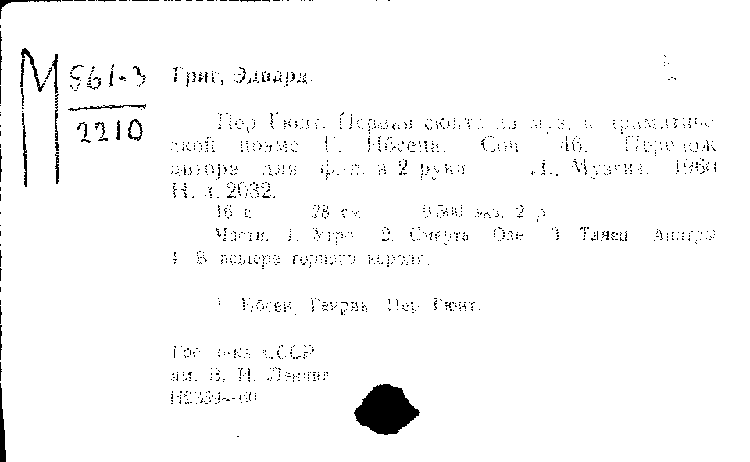 М 561-3
2210
Григ, Эдвард.
Пер Гюнт. Первая сюита из муз. к драматиче-
ской поэме Г. Ибсена. Соч 46. Перелож
автора для ф.-п. в 2 руки Л., Музгиз, 1960
Н. д. 2032.
16 с 28 см 2 р
Части. 1. Утро 2. Смерть Озе 3 Танец Анитры
4 В пещере горного короля.
1 Ибсен, Генрик Пер Гюнт.
Гос б-ка СССР
им. В. И. Ленина